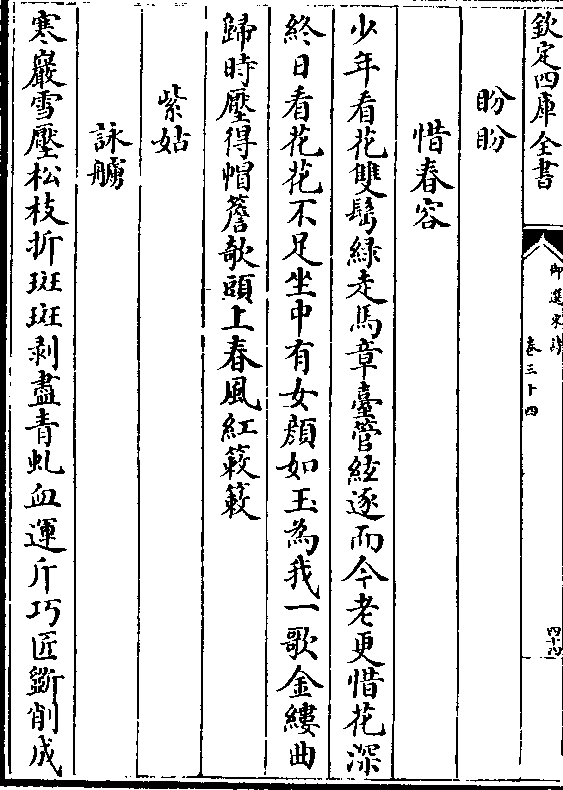 欽定四庫全書
御選宋詩
卷三十四
四十四
盼盼
惜春容
少年看花雙鬢綠走馬章臺管絃逐而今老更惜花深
終日看花花不足坐中有女顔如玉為我一歌金縷曲
歸時壓得帽簷欹頭上春風紅蔌蔌
紫姑
詠艣
寒巖雪壓松枝折斑斑剥盡青虬血運斤巧匠斵削成